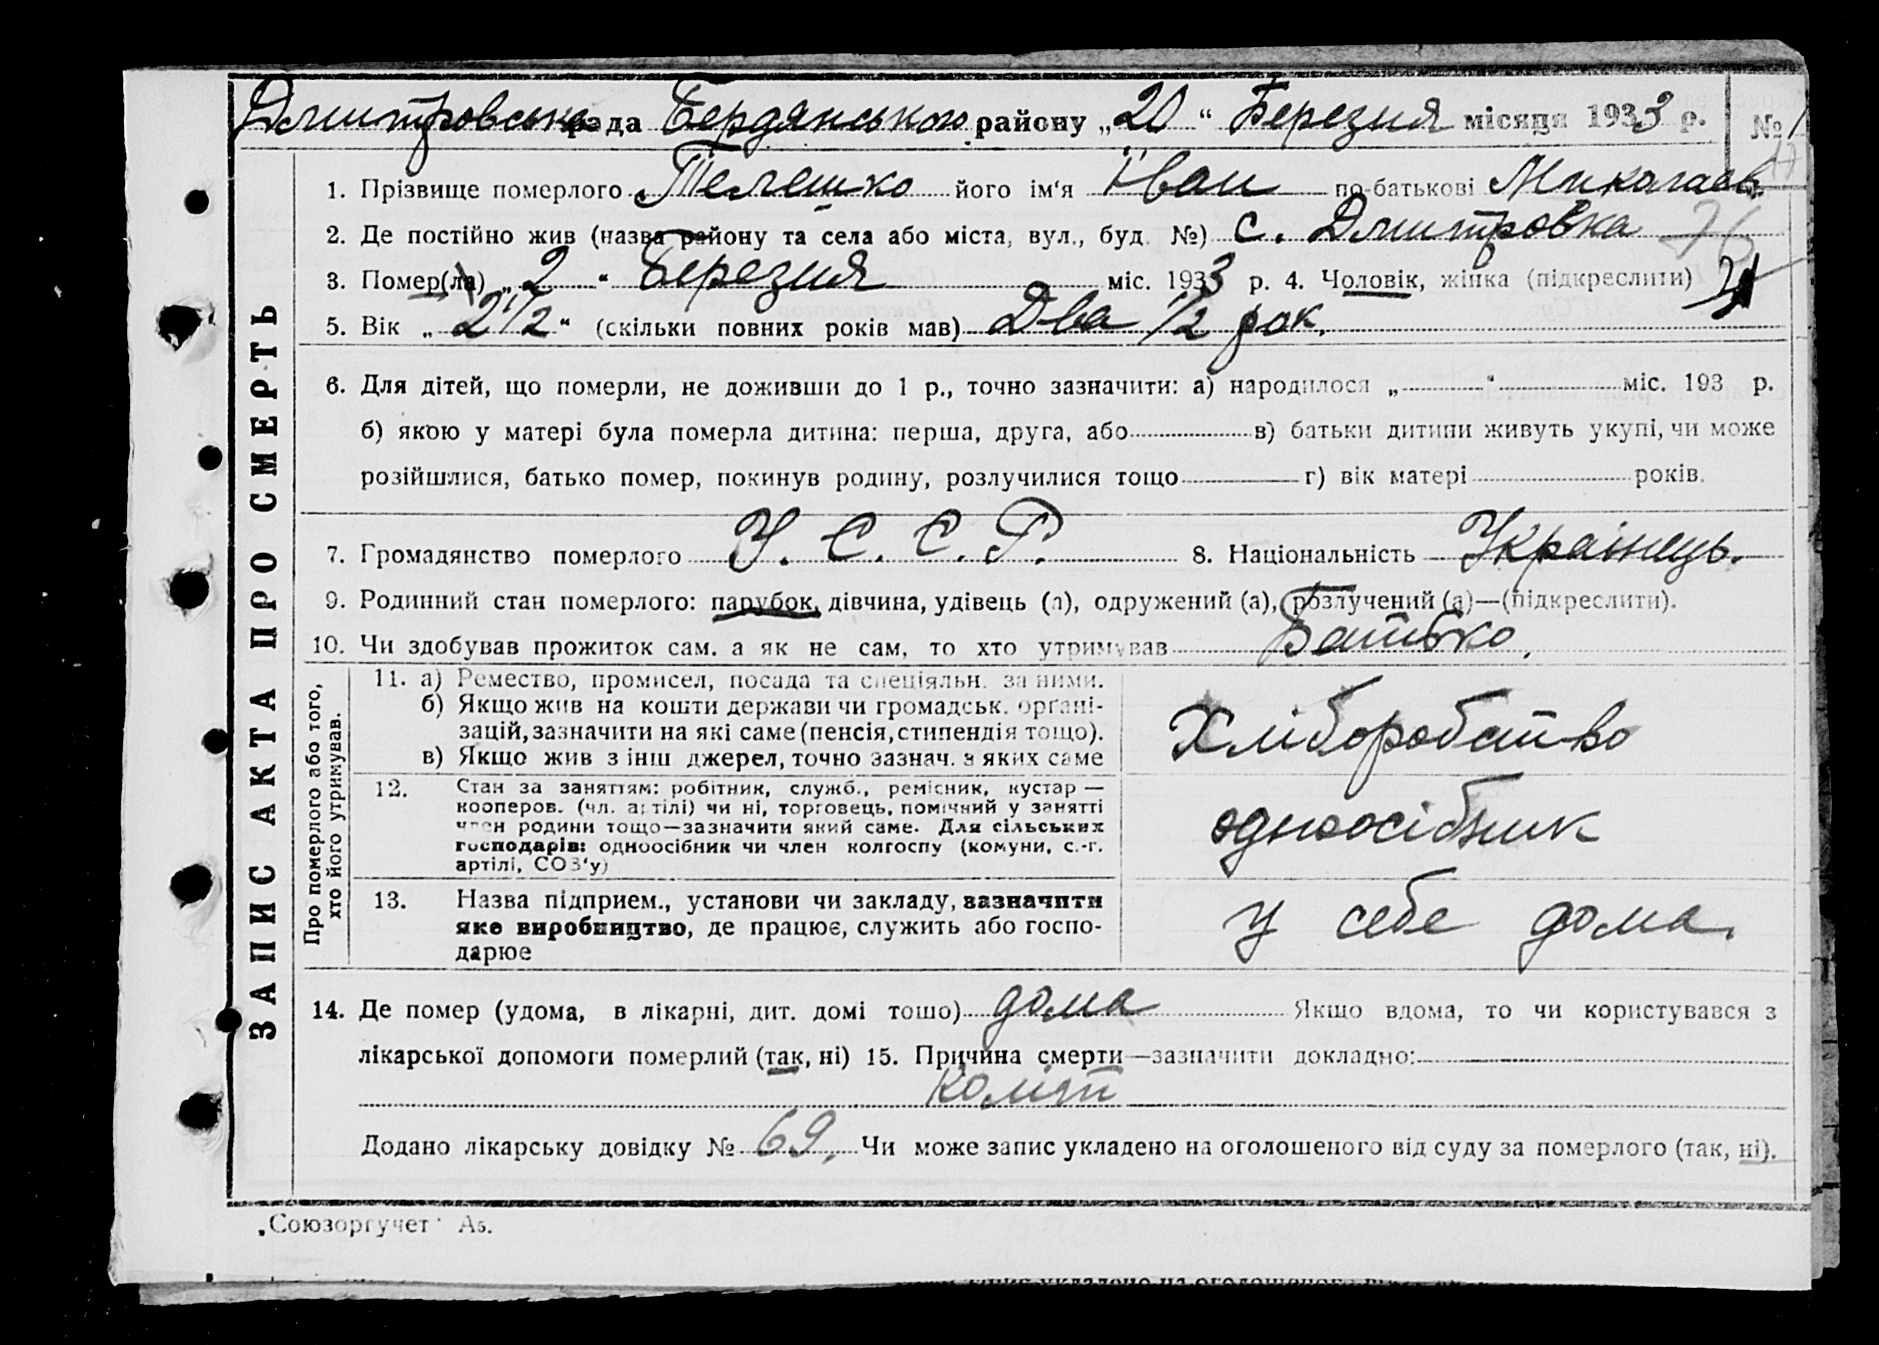 Дмитровська рада Бердянського району „20“ Березня місяця 1933 р. №
1. Прізвище померлого Телешко його ім'я Іван по-батькові Миколаєв.
2. Де постійно жив (назва району та села або міста, вул., буд. №) с. Дмитровка 76
3. Помер(ла) „2“ Березня міс. 1933 р. 4. Чоловік, жінка (підкреслити)
5. Вік „2 1/2“ (скільки повних років мав) Два 1/2 рок.
6. Для дітей, що померли, не доживши до 1 р., точно зазначити: а) народилося „ “ міс. 193 р.
б) якою у матері була померла дитина: перша, друга, або в) батьки дитини живуть укупі, чи може
розійшлися, батько помер, покинув родину, розлучилися тощо г) вік матері років.
7. Громадянство померлого У. С. С. Р. 8. Національність Українець.
9. Родинний стан померлого: парубок, дівчина, удівець (а), одружений (а), розлучений (а)—(підкреслити).
10. Чи здобував прожиток сам, а як не сам, то хто утримував Батько.
ЗАПИС АКТА ПРО СМЕРТЬ
Про померлого або того,
хто його утримував.
11. а) Ремество, промисел, посада та спеціяльн. за ними.
б) Якщо жив на кошти держави чи громадськ. органі-
зацій, зазначити на які саме (пенсія, стипендія тощо).
в) Якщо жив з інш джерел, точно зазнач. з яких саме
Хліборобство
12. Стан за заняттям: робітник, служб., ремісник, кустар —
кооперов. (чл. артілі) чи ні, торговець, помічний у занятті
член родини тощо—зазначити який саме. Для сільських
господарів: одноосібник чи член колгоспу (комуни, с.-г.
артілі, СОЗ'у)
одноосібник
13. Назва підприєм., установи чи закладу, зазначити
яке виробництво, де працює, служить або госпо-
дарює
у себе дома.
14. Де помер (удома, в лікарні, дит. домі тощо) дома Якщо вдома, то чи користувався з
лікарської допомоги померлий (так, ні) 15. Причина смерти—зазначити докладно:
Додано лікарську довідку № 69, Чи може запис укладено на оголошеного від суду за померлого (так, ні).
„Союзоргучет“ А5.